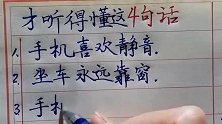 才听得懂这4句话
1. 手机喜欢静音.
2. 坐车永远靠窗.
3. 手机